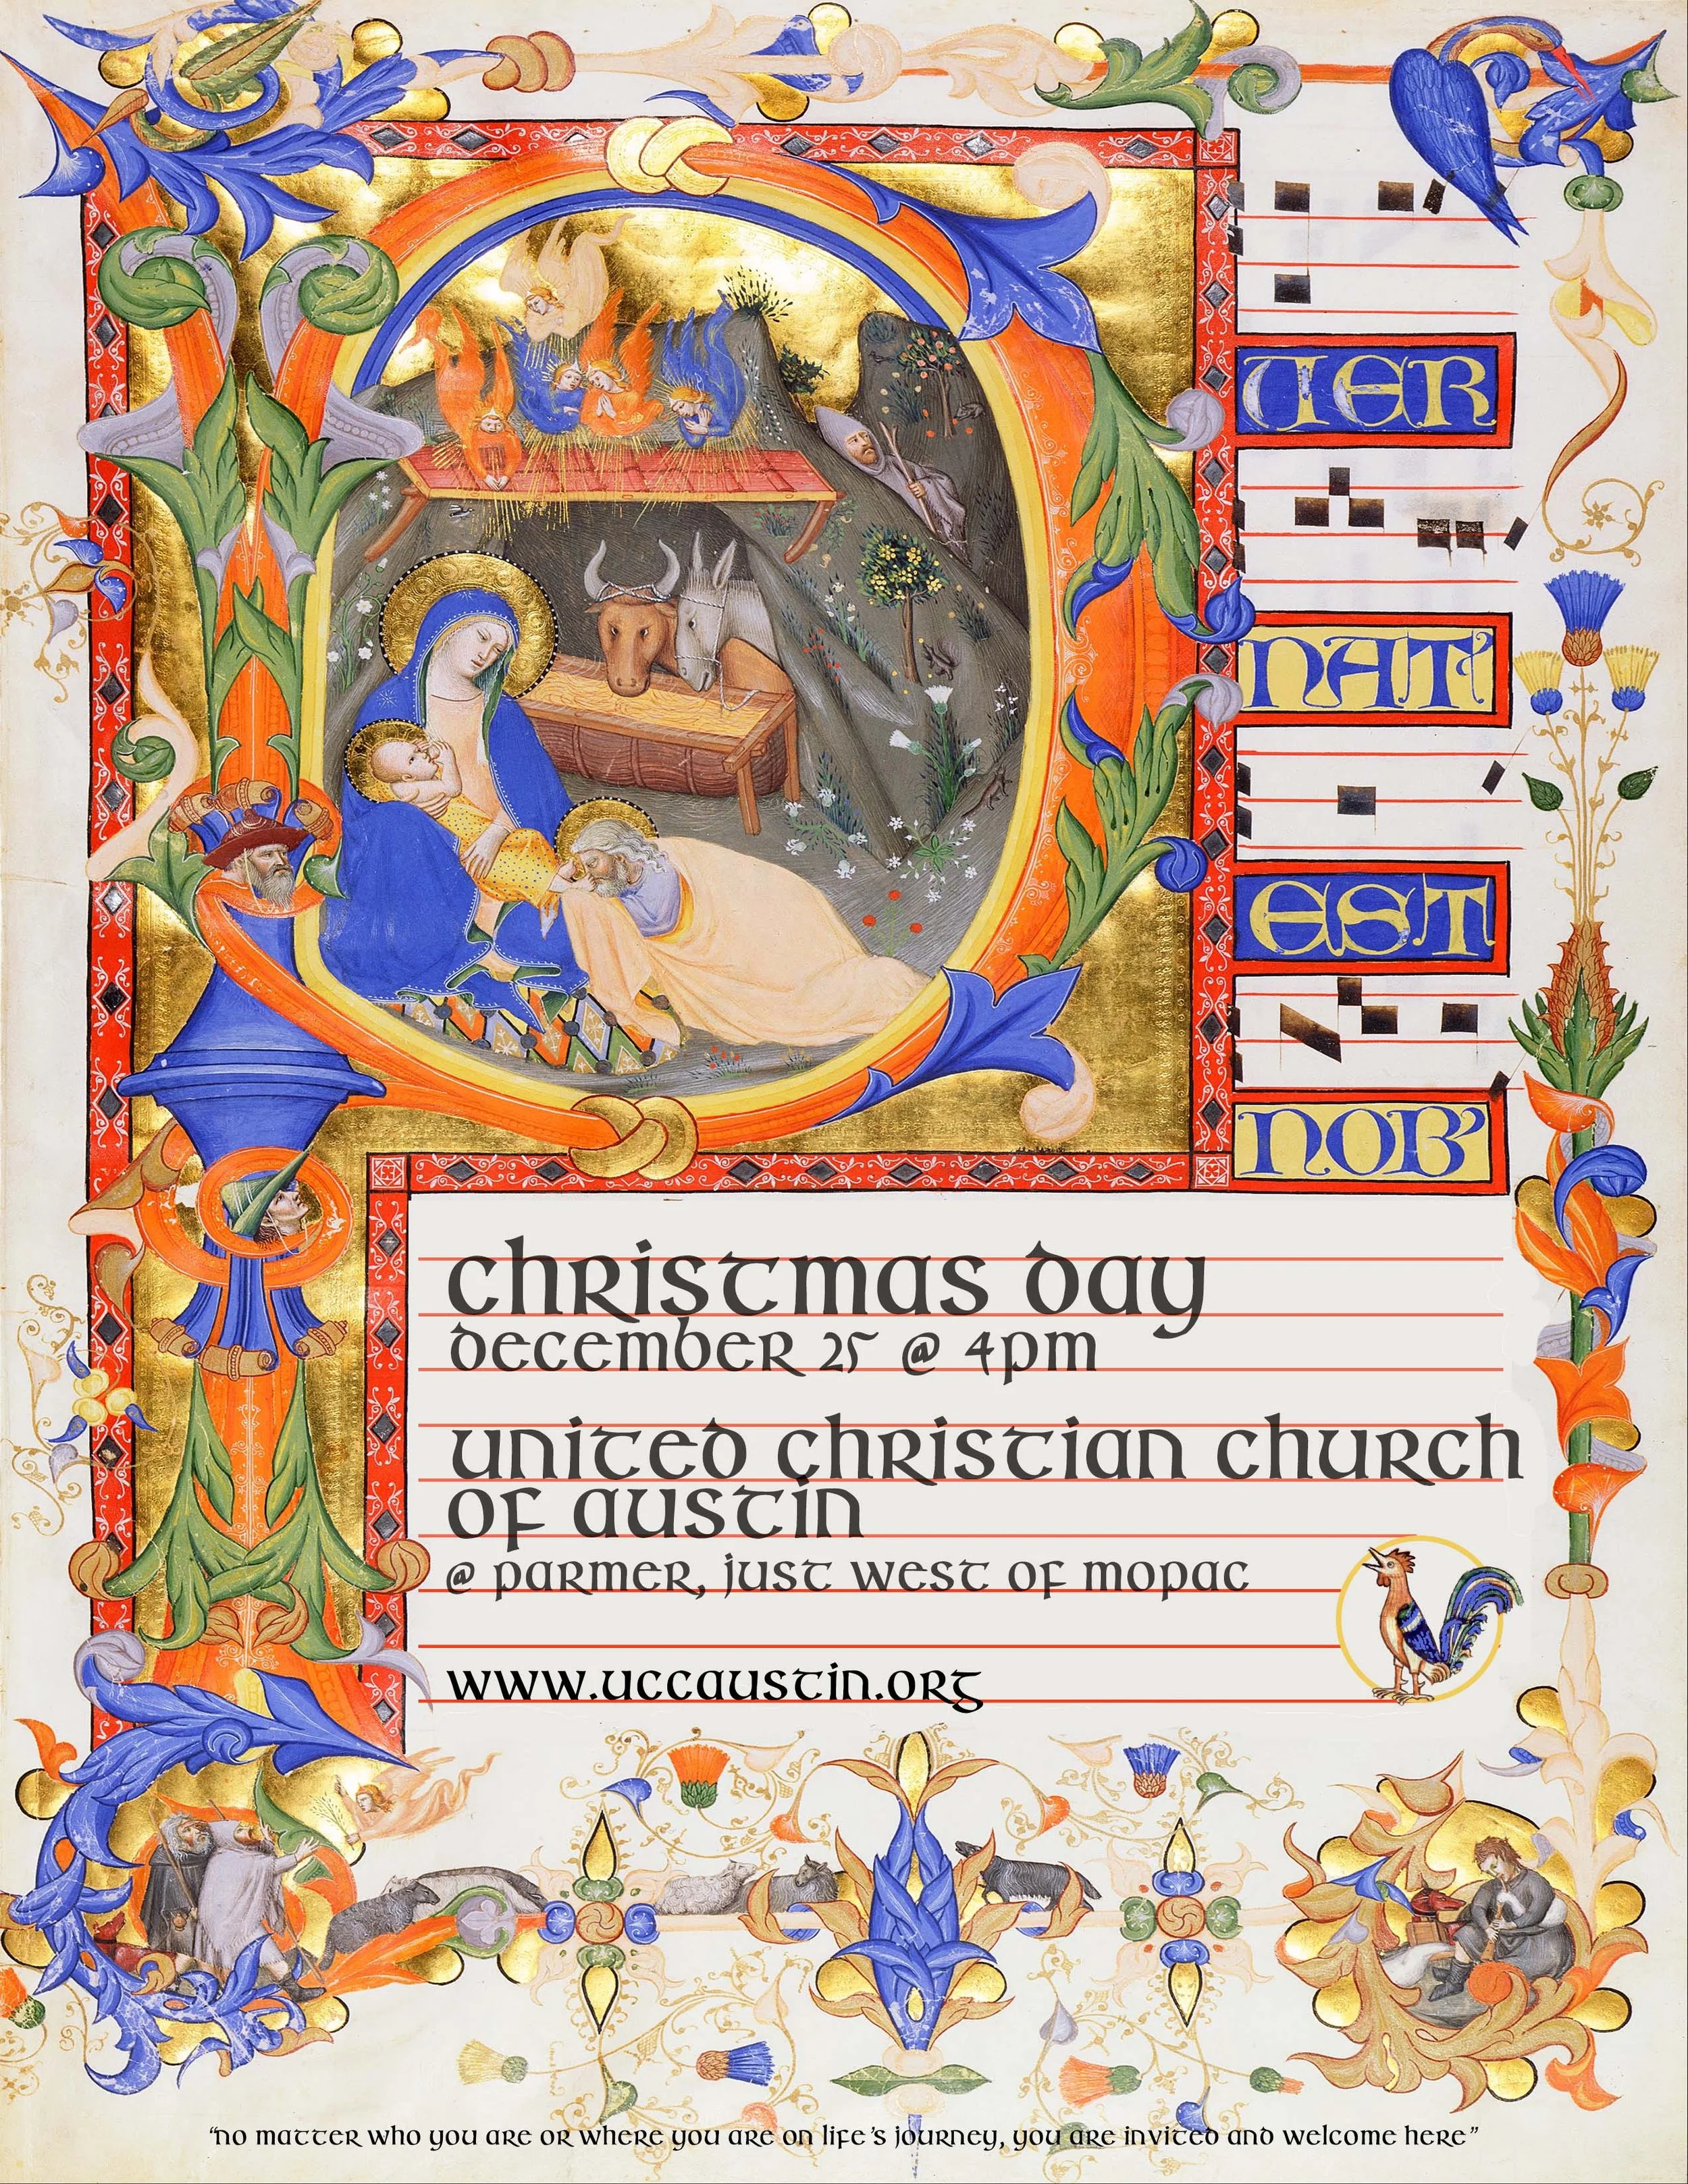 TER
NAT'
EST
NOB'
Christmas Day
December 25 @ 4pm
United Christian Church
of Austin
@ Parmer, just west of Mopac
www.uccaustin.org
“No matter who you are or where you are on life’s journey, you are invited and welcome here”